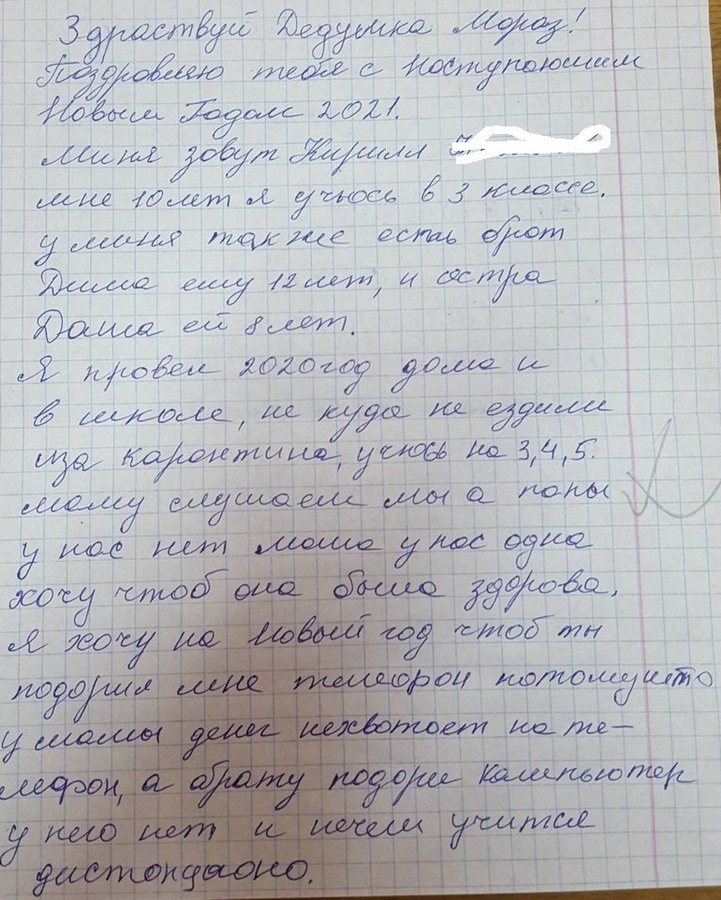 Здраствуй Дедушка Мороз!
Поздровляю тебя с Наступающим
Новым Годом 2021.
Миня зовут Кирилл
мне 10 лет я учюсь в 3 классе.
у миня также есть брат
Дима ему 12 лет, и состра
Даша ей 8 лет.
Я провел 2020 год дома и
в школе, не куда не ездили
иза карантина, учюсь на 3,4,5.
маму слушаем мы а папы
у нас нет мама у нас одна
хочу чтоб она была здорова.
Я хочу на Новый год чтоб ты
подорил мне телефон потомушто
у мамы денег нехватоет на те-
лефон, а брату подори компьютер
у него нет и нечем учится
дистонцаоно.